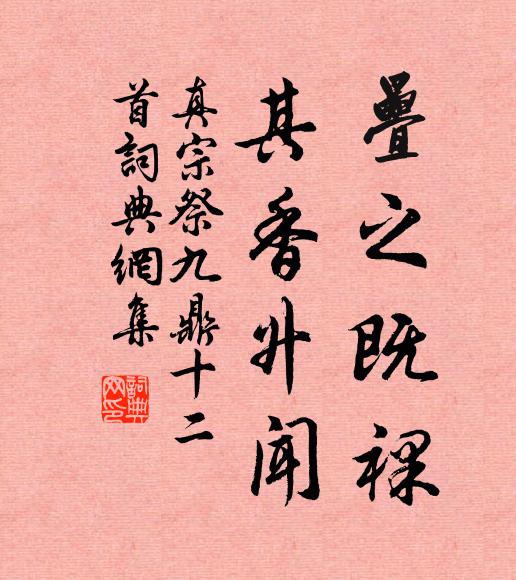 疊之既祼
其香升聞
真宗祭九鼎十二
首詞典網集
詞典网印